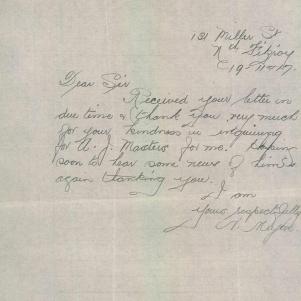 131 Miller St
Nth Fitzroy
19-11-17.
Dear Sir
Received your letter in
due time & thank you very much
for your kindness in inquiring
for A. J. Masters for me. Hopein
soon to hear some news of him &
again thanking you.
I am
yours respectfully